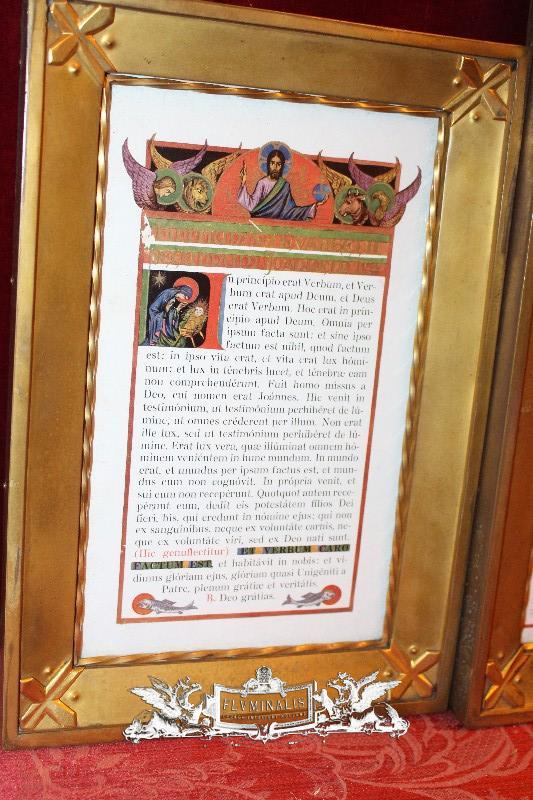 In principio erat Verbum, et Ver-
bum erat apud Deum, et Deus
erat Verbum. Hoc erat in prin-
cípio apud Deum. Omnia per
ipsum facta sunt: et sine ipso
factum est nihil, quod factum
est: in ipso vita erat, et vita erat lux hómi-
num: et lux in ténebris lucet, et ténebræ eam
non comprehendérunt. Fuit homo missus a
Deo, cui nomen erat Joánnes. Hic venit in
testimónium, ut testimónium perhibéret de lú-
mine, ut omnes créderent per illum. Non erat
ille lux, sed ut testimónium perhibéret de lú-
mine. Erat lux vera, quæ illúminat omnem hó-
minem veniéntem in hunc mundum. In mundo
erat, et mundus per ipsum factus est, et mun-
dus eum non cognóvit. In própria venit, et
sui eum non recepérunt. Quotquot autem rece-
pérunt eum, dedit eis potestátem fílios Dei
fíeri, his, qui credunt in nómine ejus: qui non
ex sanguínibus, neque ex voluntáte carnis, ne-
que ex voluntáte viri, sed ex Deo nati sunt.
(Hic genuflectitur) ET VERBUM CARO
FACTUM EST, et habitávit in nobis: et ví-
dimus glóriam ejus, glóriam quasi Unigéniti a
Patre, plenum grátiæ et veritátis.
R. Deo grátias.
FLVMINALIS